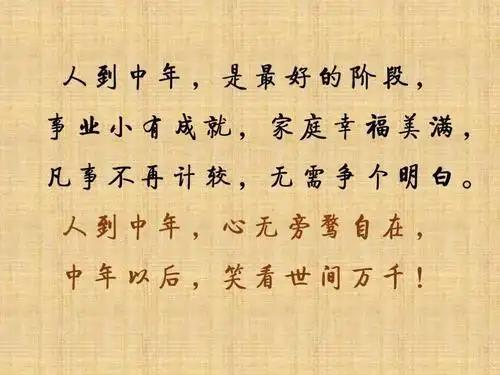 人到中年，是最好的阶段，
事业小有成就，家庭幸福美满，
凡事不再计较，无需争个明白。
人到中年，心无旁鹜自在，
中年以后，笑看世间万千！